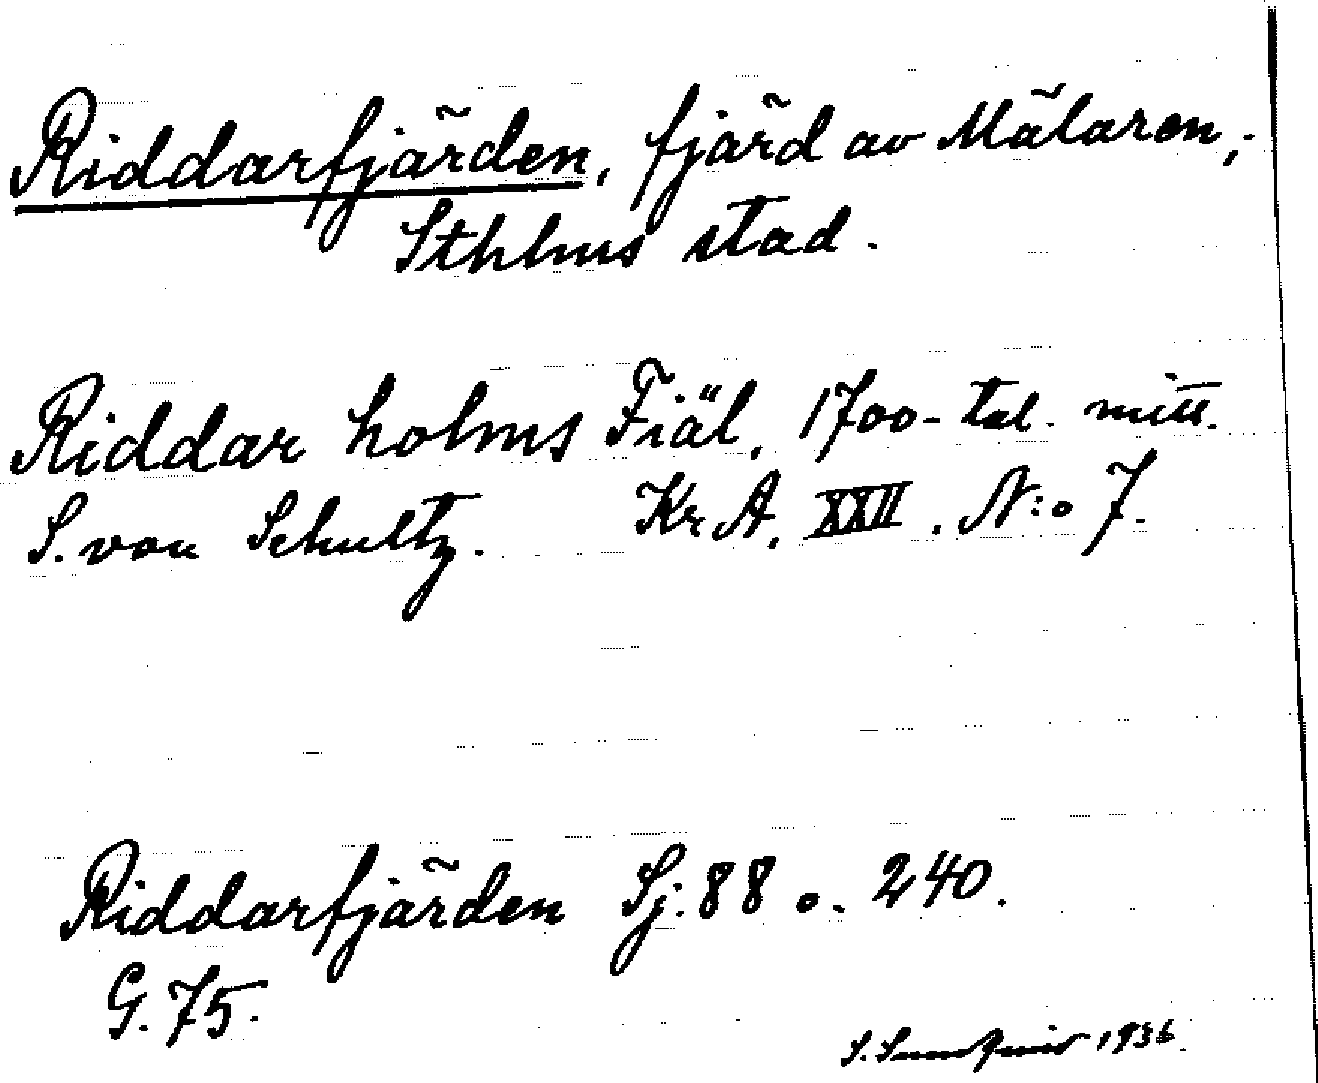 Riddarfjärden, fjärd av Mälaren,
Sthlms stad.
Riddar holms Fiäl, 1700-tal. mitt.
S. von Schultz. Kr A. XXII. N:o 7.
Riddarfjärden Sj. 88 o. 240.
G. 75.
S. 1936